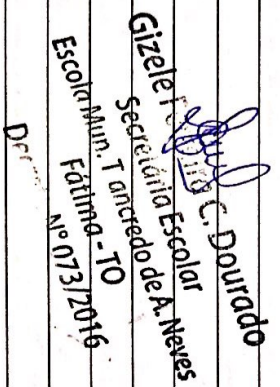 Gizele C. Dourado
Secretária Escolar
Escola Mun. Tancredo de A. Neves
Fátima - TO
Nº 073/2016